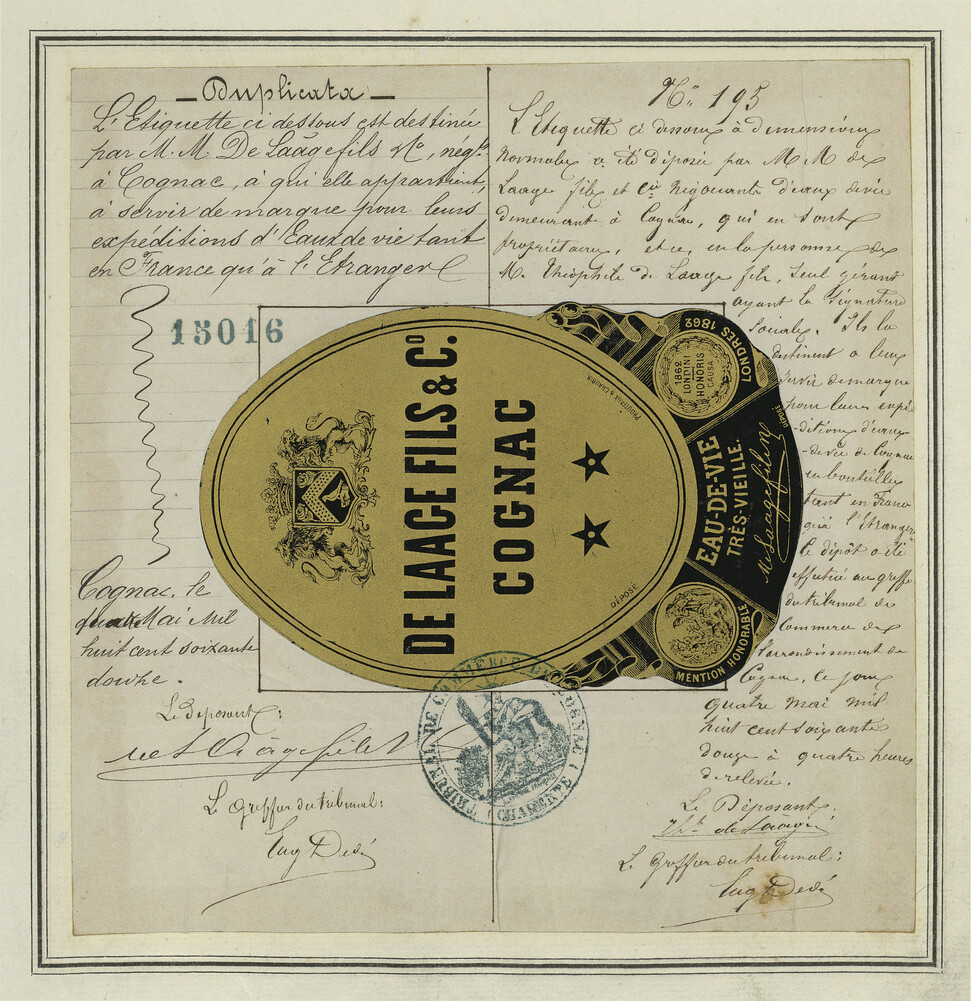 Duplicata
L'Etiquette ci dessous est destinée
par M. M. De Laage fils & Cie, negts
à Cognac, à qui elle appartient,
à servir de marque pour leurs
expéditions d'Eaux de vie tant
en France qu'à l'Etranger
15016
Cognac, le
quatre Mai Mil
huit cent soixante
douze.
Le Déposant:
Le Greffier du tribunal:
Eug Dedé
N° 195
L'Etiquette ci dessous à dimensions
Normales a été déposée par M M de
Laage fils et Cie Négociants d'eaux de vie
demeurant à Cognac, qui en sont
propriétaires, et ce, en la personne de
M. Théophile de Laage fils, seul gérant
ayant la signature
sociale. Ils la
destinent à leur
servir de marque
pour leurs expé
-ditions d'eaux
-de vie de Cognac
en bouteilles
tant en France
qu'à l'Etranger
le dépôt a été
effectué au greffe
du tribunal de
Commerce de
l'arrondissement de
Cognac, ce jour
quatre mai mil
huit cent soixante
douze à quatre heures
de relevée.
Le Déposant.
Th. de Laage
Le Greffier du tribunal:
Eug Dedé
DE LAAGE FILS & Co.
COGNAC
DÉPOSÉ
LONDRES 1862
1862
LONDINI
HONORIS
CAUSA
EAU-DE-VIE
TRÈS-VIEILLE.
DÉPOSÉ
MENTION HONORABLE
TRIBUNAL DE COMMERCE COGNAC (CHARENTE)